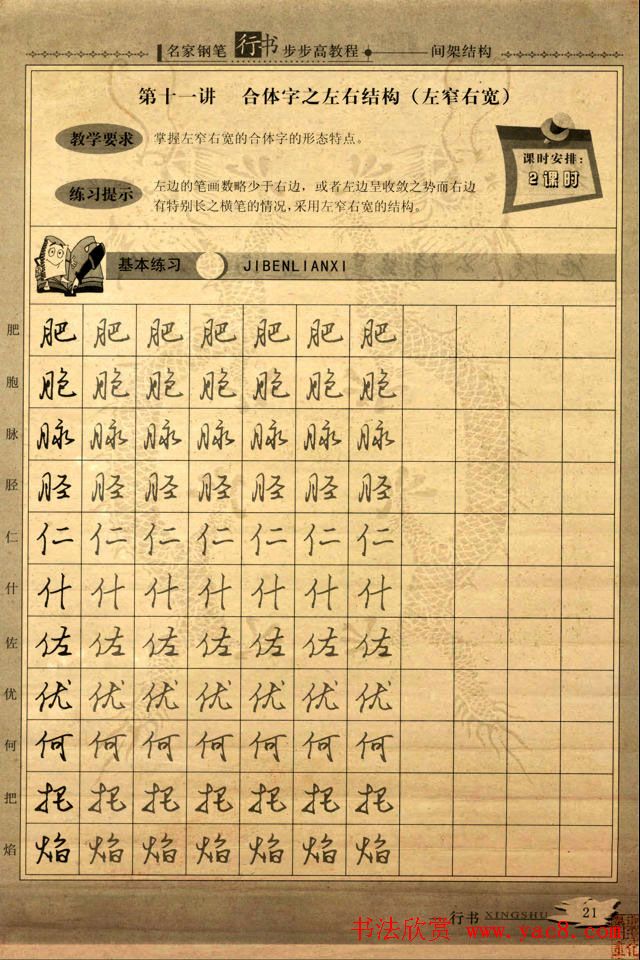 名家钢笔行书步步高教程 间架结构
第十一讲 合体字之左右结构（左窄右宽）
教学要求 掌握左窄右宽的合体字的形态特点。
练习提示 左边的笔画数略少于右边，或者左边呈收敛之势而右边
有特别长之横笔的情况，采用左窄右宽的结构。
课时安排：
2课时
基本练习 JIBENLIANXI
肥 肥 肥 肥 肥 肥 肥 肥
胞 胞 胞 胞 胞 胞 胞 胞
脉 脉 脉 脉 脉 脉 脉 脉
胫 胫 胫 胫 胫 胫 胫 胫
仁 仁 仁 仁 仁 仁 仁 仁
什 什 什 什 什 什 什 什
佐 佐 佐 佐 佐 佐 佐 佐
优 优 优 优 优 优 优 优
何 何 何 何 何 何 何 何
把 把 把 把 把 把 把 把
焰 焰 焰 焰 焰 焰 焰 焰
行书 XINGSHU 21
书法欣赏 www.yac8.com